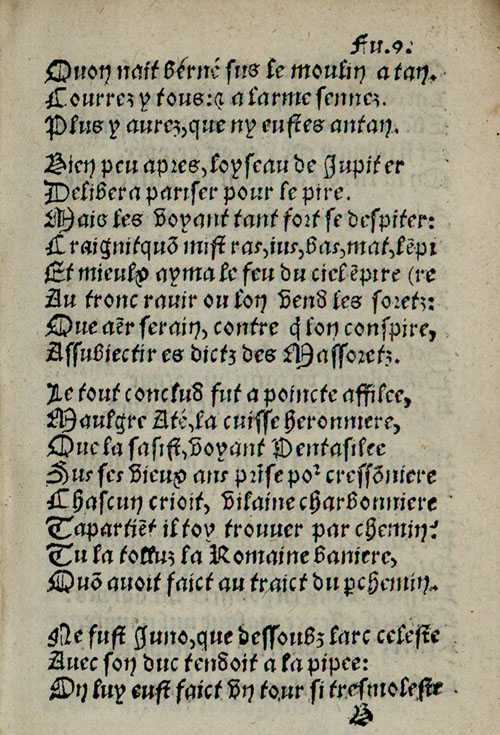 Fu.9.
Quon nait berné sus le moulin a tan.
Courrez y tous: & a larme sennez.
Plus y aurez, que ny eustes antan.
Bien peu apres, loyseau de Jupiter
Delibera pariser pour le pire.
Mais les voyant tant fort se despiter:
Craignit quõ mist ras, ius, bas, mat, lẽpi
Et mieulx ayma le feu du ciel ẽpire (re
Au tronc ravir ou lon vend les soretz:
Que aër serain, contre q̃ lon conspire,
Assubiectir es dictz des Massoretz.
Le tout conclud fut a poincte affilee,
Maulgre Até, la cuisse heronniere,
Que la sasist, voyant Pentasilee
Sus ses vieux ans prise poʳ cressõniere
Chascun crioit, vilaine charbonniere
Tapartiẽt il toy trouver par chemin?
Tu la tolluz la Romaine baniere,
Quõ avoit faict au traict du ꝑchemin.
Ne fust Juno, que dessoubz larc celeste
Avec son duc tendoit a la pipee:
On luy eust faict vn tour si tresmoleste
B